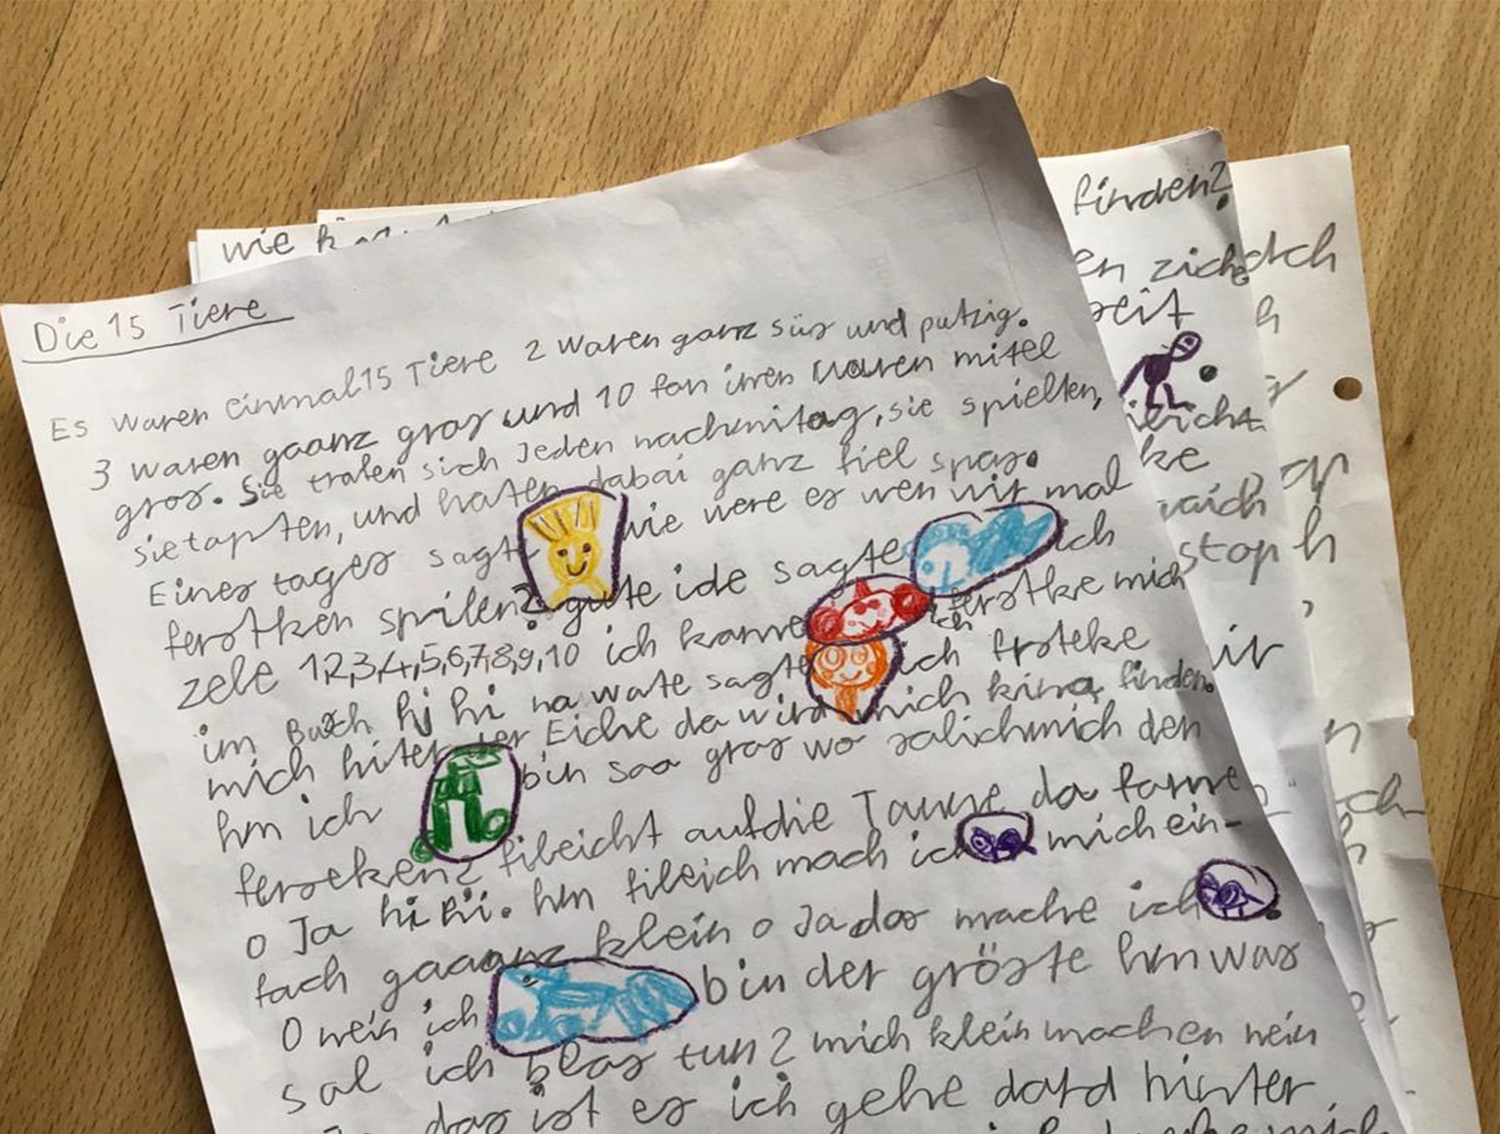 wie
Die 15 Tiere
Es waren einmal 15 Tiere 2 waren ganz süs und putzig.
3 waren gaanz gros und 10 fon inen waren mitel
gros. Sie trafen sich Jeden nachmitag, sie spielten,
sie tansten, und haten dabai ganz fiel spas.
Eines tages sagte wie were es wen wir mal
ferstken spilen? gute ide sagte ich
zele 1,2,3,4,5,6,7,8,9,10 ich kanne ich ferstke mich
im Buch hi hi na wate sagte ich frsteke
mich hiter der Eiche da wird mich kina finden.
hm ich bin saa gros wo salichmich den
ferseken? fileicht auf die Tanne da fanne
o Ja hi hi. hm fileich mach ich mich ein-
fach gaaanz klein o Ja das mache ich.
O nein ich bin der gröste hm was
sal ich blas tun? mich klein machen nein
das ist es ich gehe dard hinter
finden?
en zich
zeit
ke
stop
dch
h
ir